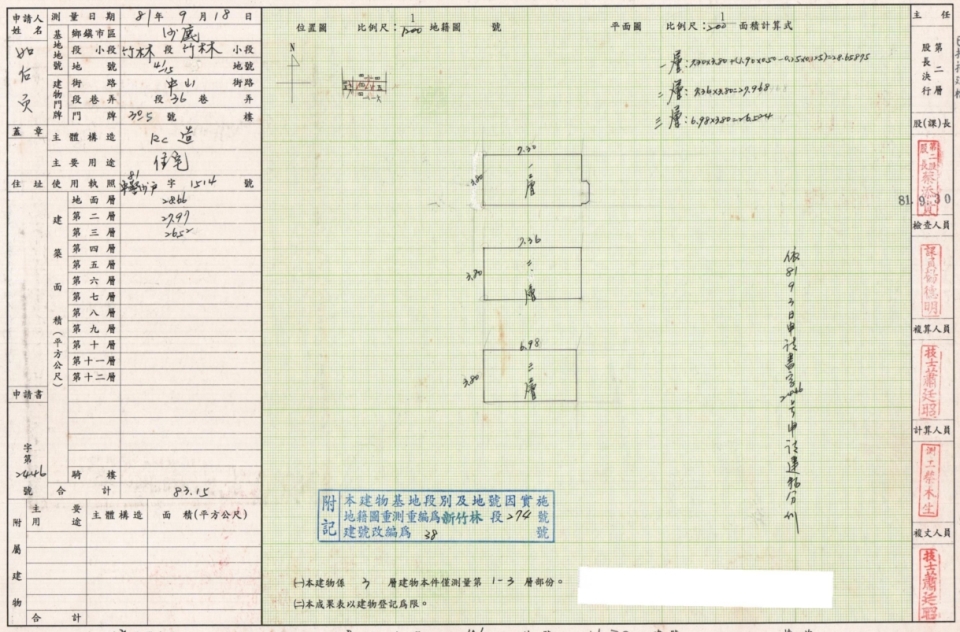 申請人姓名
如右頁
蓋章
住址
申請書
字第
2446
號
測量日期 81年9月18日
基地地號
鄉鎮市區 沙鹿
段小段 竹林段竹林小段
地號 地號
建物門牌
街路 中山 街路
段巷弄 段36巷 弄
門牌 號 樓
主體構造 RC造
主要用途 住宅
使用執照 字1514號
建築面積(平方公尺)
地面層 28.66
第二層 27.97
第三層 26.52
第四層
第五層
第六層
第七層
第八層
第九層
第十層
第十一層
第十二層
騎樓
合計 83.15
附屬建物
主要用途 主體構造 面積(平方公尺)
合計
位置圖 比例尺: 地籍圖 號
平面圖 比例尺: 面積計算式
N
二層:7.36x3.80=27.968
三層:6.98x3.80=26.524
3.80
一層
7.36
3.80
二層
6.98
3.80
三層
附記
本建物基地段別及地號因實施
地籍圖重測重編為新竹林段274號
建號改編為38號
(一)本建物係3層建物本件僅測量第1-3層部份。
(二)本成果表以建物登記為限。
主任
第二層
股長決行
股(課)長
81.9.30
檢查人員
複算人員
技士蕭廷昭
計算人員
複丈人員
技士蕭廷昭